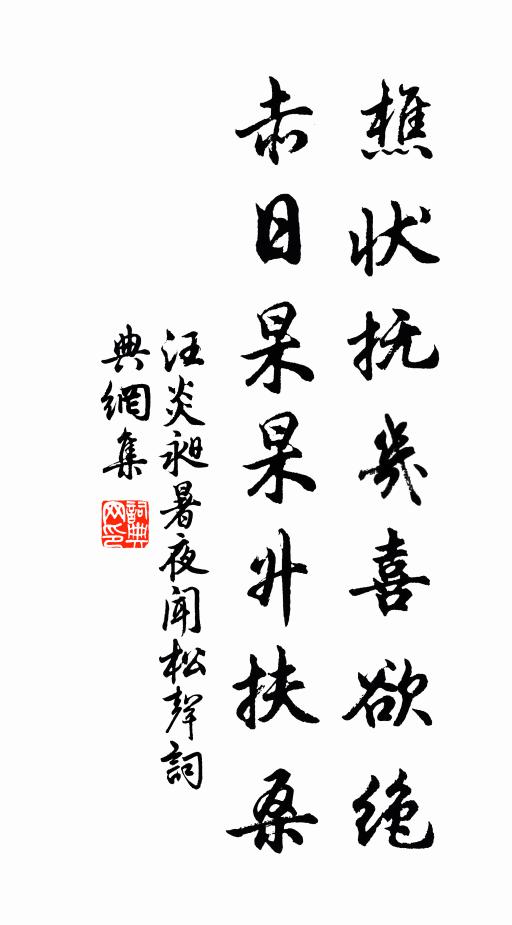 樵状抚幾喜欲绝
赤日杲杲升扶桑
汪炎昶暑夜闻松聲詞
典網集
詞典网印